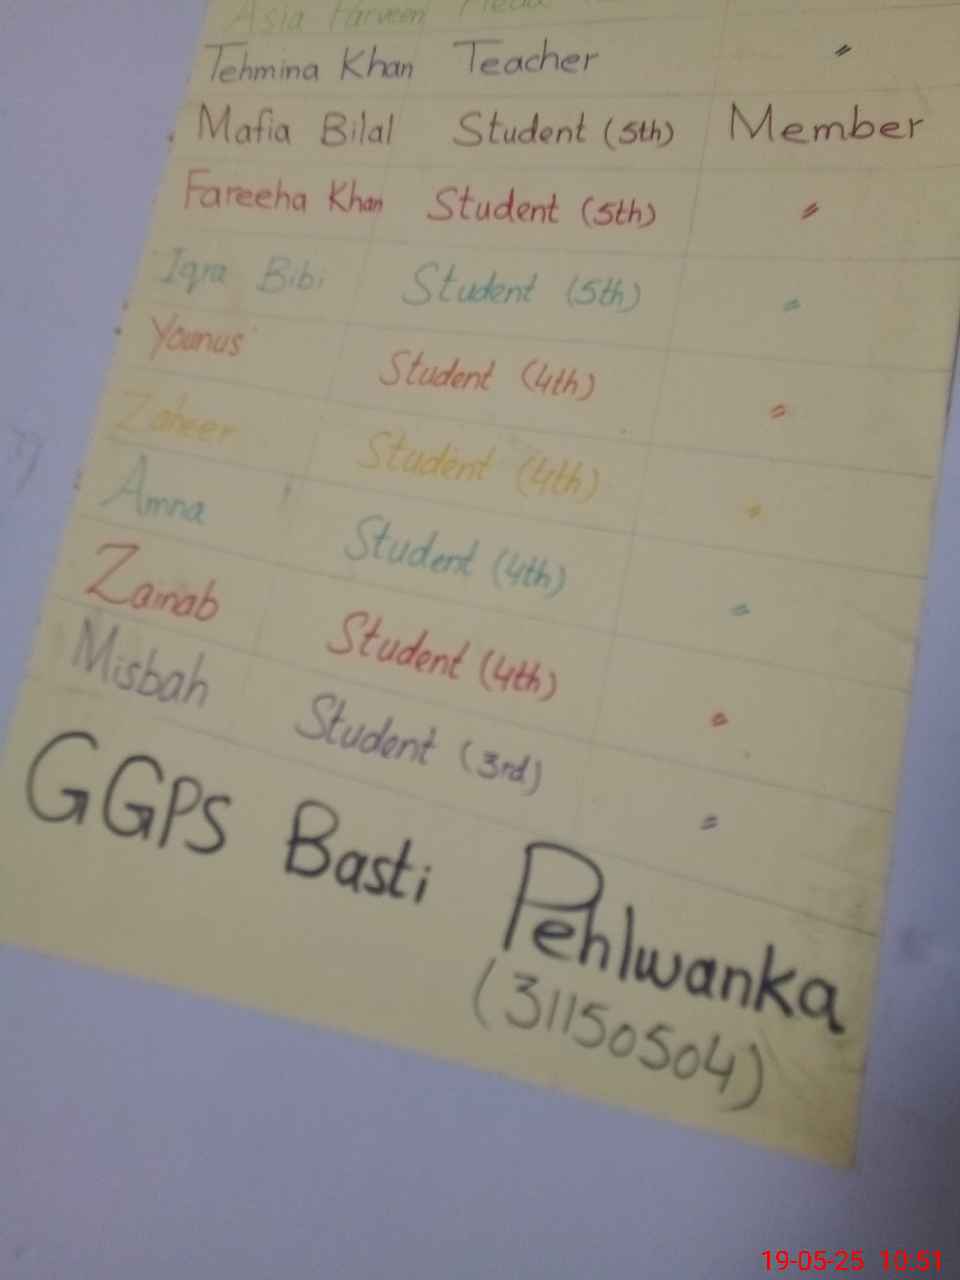 Asia Parveen Head
Tehmina Khan Teacher "
Mafia Bilal Student (5th) Member
Fareeha Khan Student (5th) "
Iqra Bibi Student (5th) "
Younus Student (4th) "
Zaheer Student (4th) "
Amna Student (4th) "
Zainab Student (4th) "
Misbah Student (3rd) "
GGPS Basti Pehlwanka
(31150504)
19-05-25 10:51